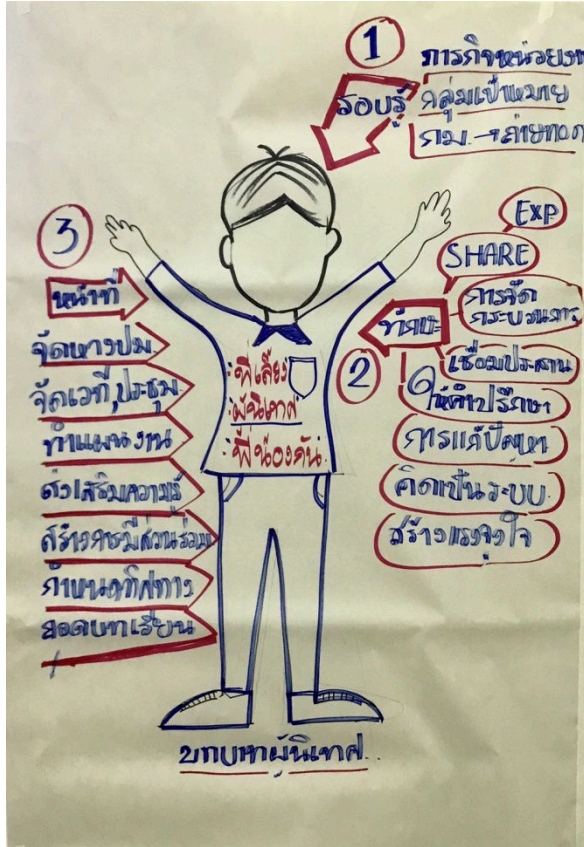 1
รอบรู้
ภารกิจหน่วยงา
กลุ่มเป้าหมาย
กม. → ถ่ายทอด
2
ทักษะ
Exp
SHARE
การจัด
กระบวนการ
เชื่อมประสาน
ให้คำปรึกษา
การแก้ปัญหา
คิดเป็นระบบ
สร้างแรงจูงใจ
3
หน้าที่
จัดหางปม.
จัดเวที, ประชุม
ทำแผนงาน
ส่งเสริมความรู้
สร้างการมีส่วนร่วม
กำหนดทิศทาง
ถอดบทเรียน
พี่เลี้ยง
ผู้นิเทศ
พี่น้องกัน
บทบาทผู้นิเทศ..